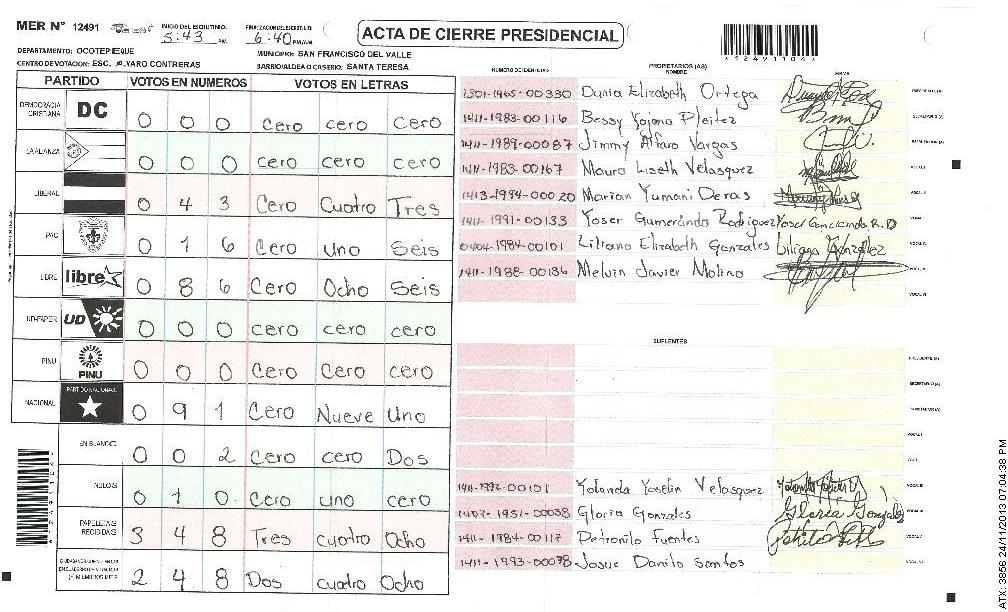 MER N° 12491
INICIO DEL ESCRUTINIO: 5:43 PM
FINALIZACION DEL ESCRUTINIO: 6:40 PM/AM
ACTA DE CIERRE PRESIDENCIAL
*12491104*
DEPARTAMENTO: OCOTEPEQUE
MUNICIPIO: SAN FRANCISCO DEL VALLE
CENTRO DE VOTACION: ESC. ALVARO CONTRERAS
BARRIO/ALDEA O CASERIO: SANTA TERESA
PARTIDO VOTOS EN NUMEROS VOTOS EN LETRAS
DEMOCRACIA CRISTIANA DC 0 0 0 cero cero cero
LA ALIANZA 0 0 0 cero cero cero
LIBERAL 0 4 3 Cero Cuatro Tres
PAC 0 1 6 Cero uno Seis
LIBRE libre 0 8 6 Cero Ocho Seis
UD-FAPER UD 0 0 0 cero cero cero
PINU PINU 0 0 0 Cero Cero cero
NACIONAL PARTIDO NACIONAL 0 9 1 Cero Nueve Uno
EN BLANCO 0 0 2 Cero cero Dos
NULOS 0 1 0 Cero uno cero
PAPELETAS RECIBIDAS 3 4 8 Tres cuatro Ocho
2 4 8 Dos cuatro Ocho
NUMERO DE IDENTIDAD PROPIETARIOS (AS) NOMBRE FIRMA
1301-1965-00330 Dunia Elizabeth Ortega PRESIDENTE (A)
1411-1983-00116 Bessy Yojana Pleitez SECRETARIO (A)
1411-1989-00087 Jimmy Alfaro Vargas
1411-1983-00167 Maura Liseth Velasquez VOCAL I
1413-1994-00020 Marian Yumani Deras
1411-1991-00133 Yoser Gumercindo Rodriguez
0404-1984-00101 Liliana Elizabeth Gonzales Liliana Gonzalez
1411-1988-00136 Melvin Javier Molina
SUPLENTES
PRESIDENTE (A)
SECRETARIO (A)
1411-1992-00101 Yolanda Yoselin Velasquez
1407-1951-00038 Gloria Gonzales Gloria Gonzalez
1411-1984-00117 Petronilo Fuentes
1411-1993-00098 Josue Danilo Santos
ATX: 3856 24/11/2013 07:04:38 PM